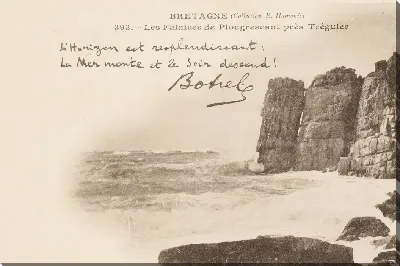 BRETAGNE (Collection E. Hamonic)
393. - Les Falaises de Plougrescant près Tréguier
L'Horizon est resplendissant :
La Mer monte et le Soir descend !
Botrel